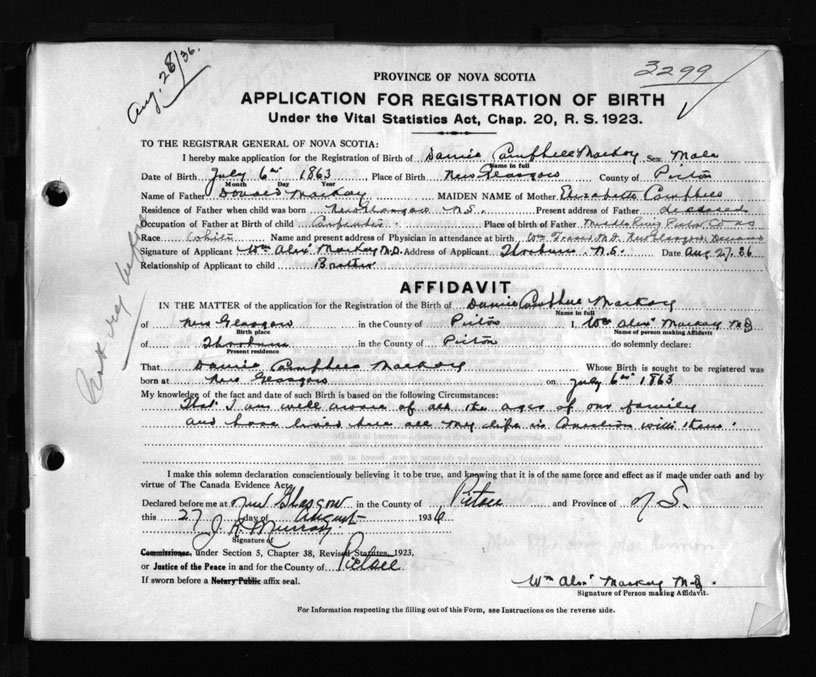 Aug. 28/36.
3299
PROVINCE OF NOVA SCOTIA
APPLICATION FOR REGISTRATION OF BIRTH
Under the Vital Statistics Act, Chap. 20, R. S. 1923.
TO THE REGISTRAR GENERAL OF NOVA SCOTIA:
I hereby make application for the Registration of Birth of Campbell MacKay Sex Male
Name in full
Date of Birth July 6th 1863 Place of Birth New Glasgow County of Pictou
Month Day Year
Name of Father Donald MacKay MAIDEN NAME of Mother Elizabeth Campbell
Residence of Father when child was born New Glasgow N.S. Present address of Father deceased
Occupation of Father at Birth of child Carpenter Place of birth of Father Middle River Pictou Co N.S
Race White Name and present address of Physician in attendance at birth Wm M.D. New Glasgow
Signature of Applicant Wm Alexr MacKay M.D. Address of Applicant Thorburn N.S. Date Aug 27, 36
Relationship of Applicant to child Brother
Not reg before
AFFIDAVIT
IN THE MATTER of the application for the Registration of the Birth of Campbell MacKay
Name in full
of New Glasgow in the County of Pictou I, Wm Alexr MacKay M.D
Birth place Name of person making Affidavit
of Thorburn in the County of Pictou do solemnly declare:
Present residence
That Campbell MacKay Whose Birth is sought to be registered was
born at New Glasgow on July 6th 1863
My knowledge of the fact and date of such Birth is based on the following Circumstances:
That I am well aware of all the ages of our family
and have lived here all my life in Connection with them.
I make this solemn declaration conscientiously believing it to be true, and knowing that it is of the same force and effect as if made under oath and by
virtue of The Canada Evidence Act.
Declared before me at New Glasgow in the County of Pictou and Province of N.S.
this 27 day of August 1936
Murray
Signature of
Commissioner, under Section 5, Chapter 38, Revised Statutes 1923,
or Justice of the Peace in and for the County of Pictou
If sworn before a Notary Public affix seal.
Wm Alexr MacKay M.D.
Signature of Person making Affidavit.
For Information respecting the filling out of this Form, see Instructions on the reverse side.